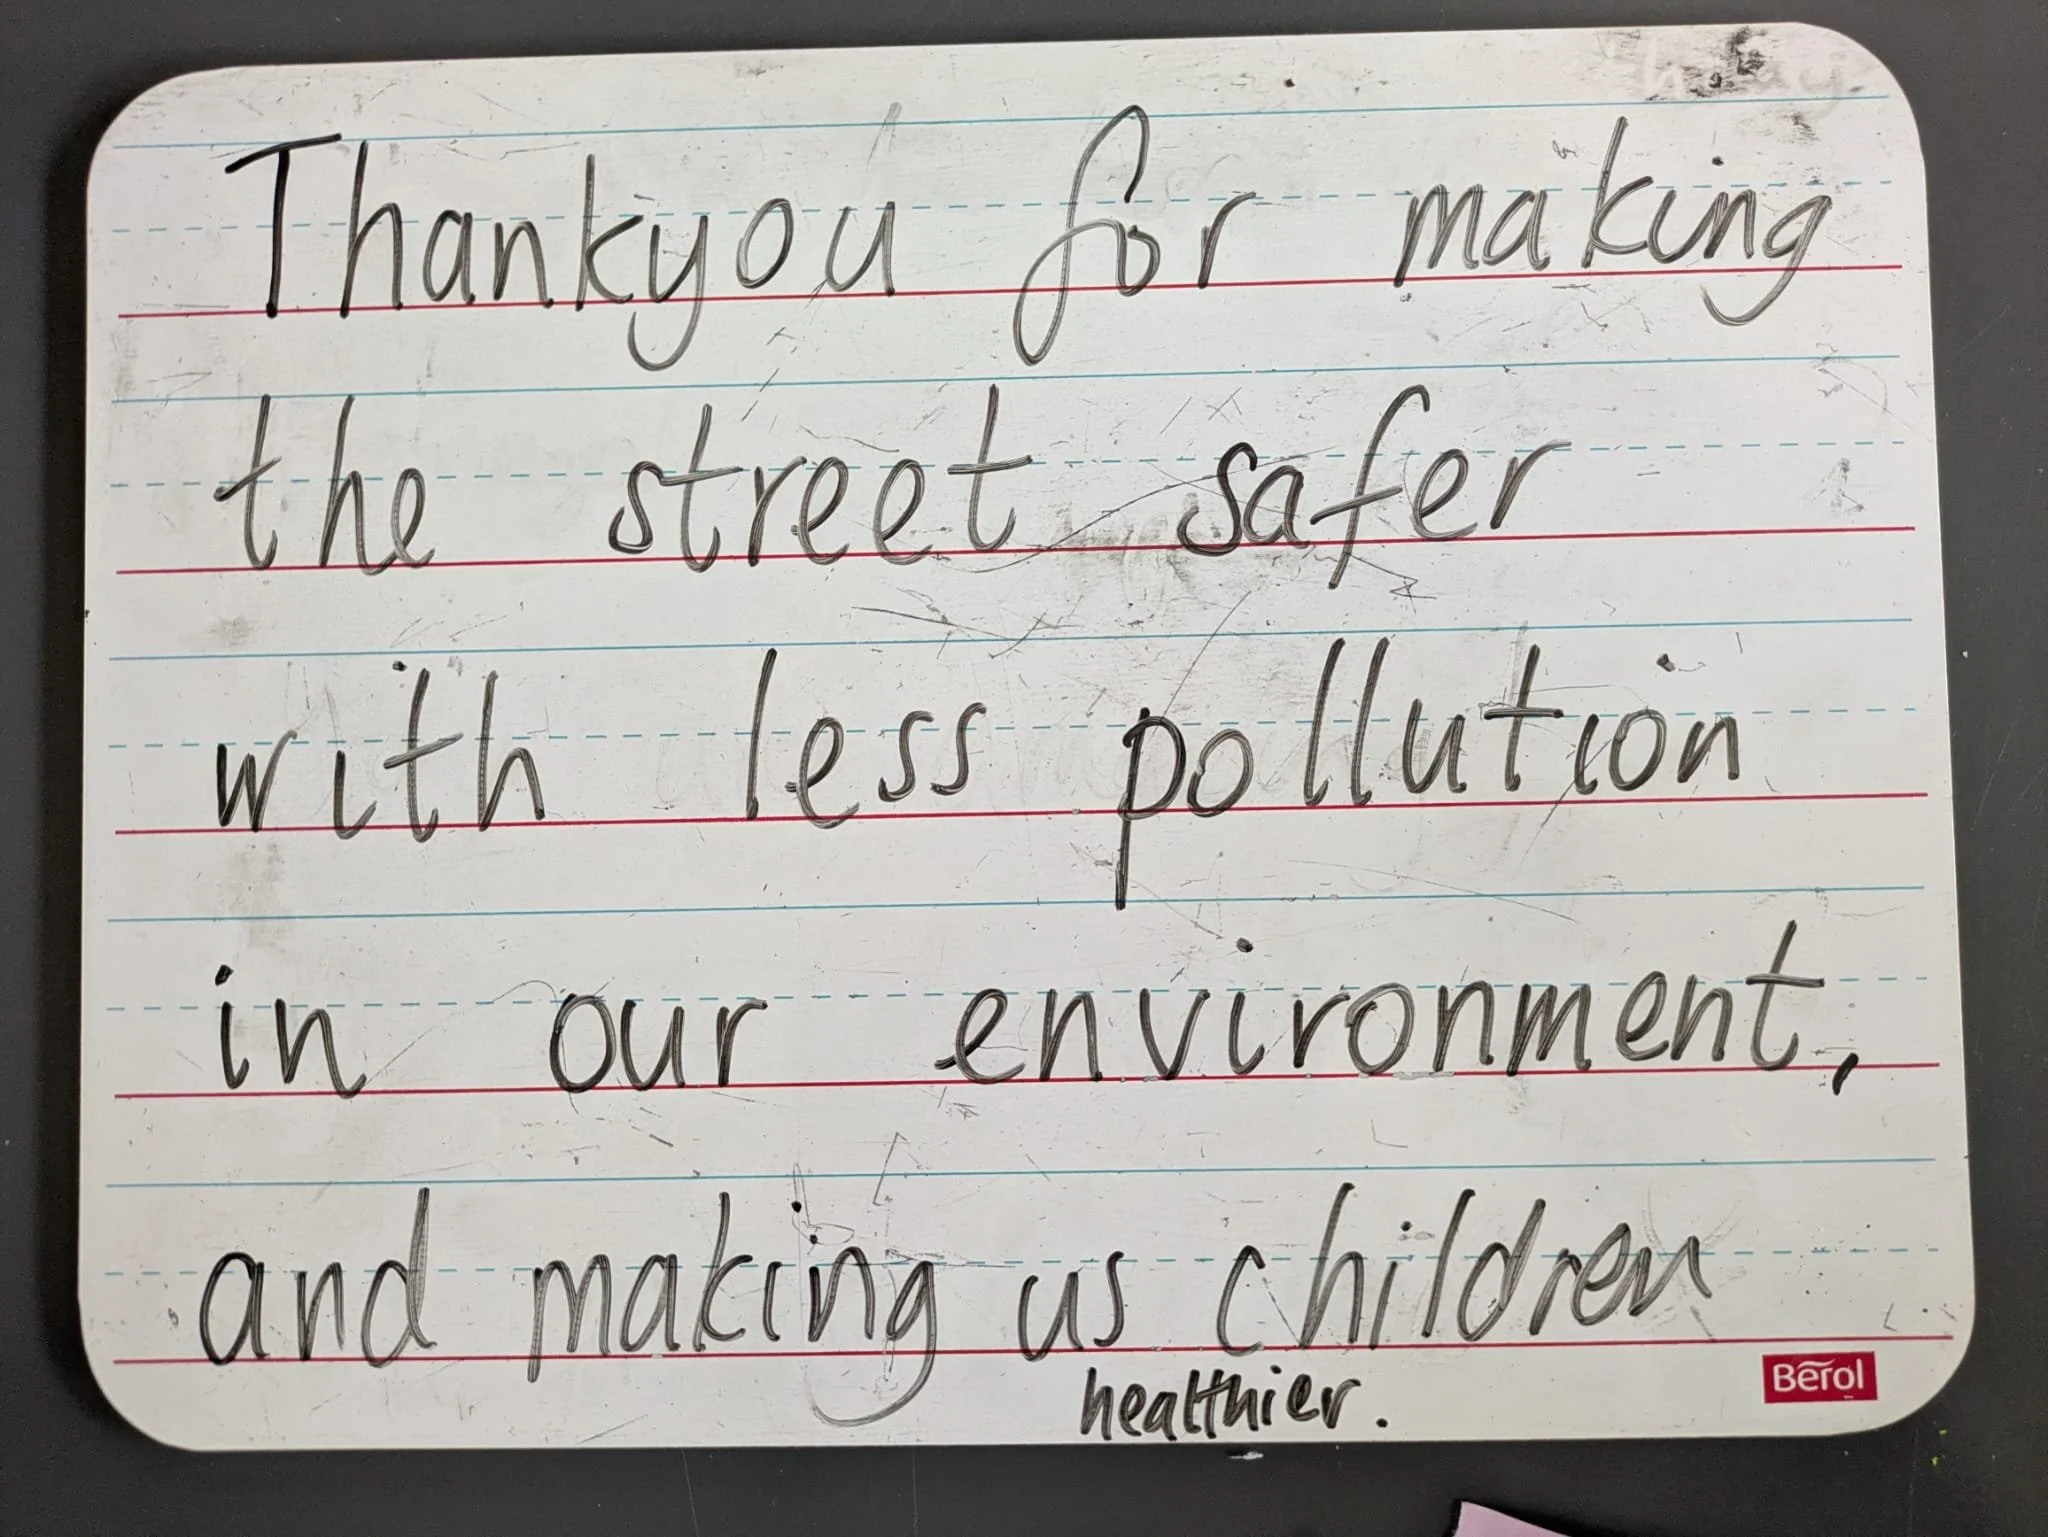 Thankyou for making
the street safer
with less pollution
in our environment,
and making us children
healthier.
Berol